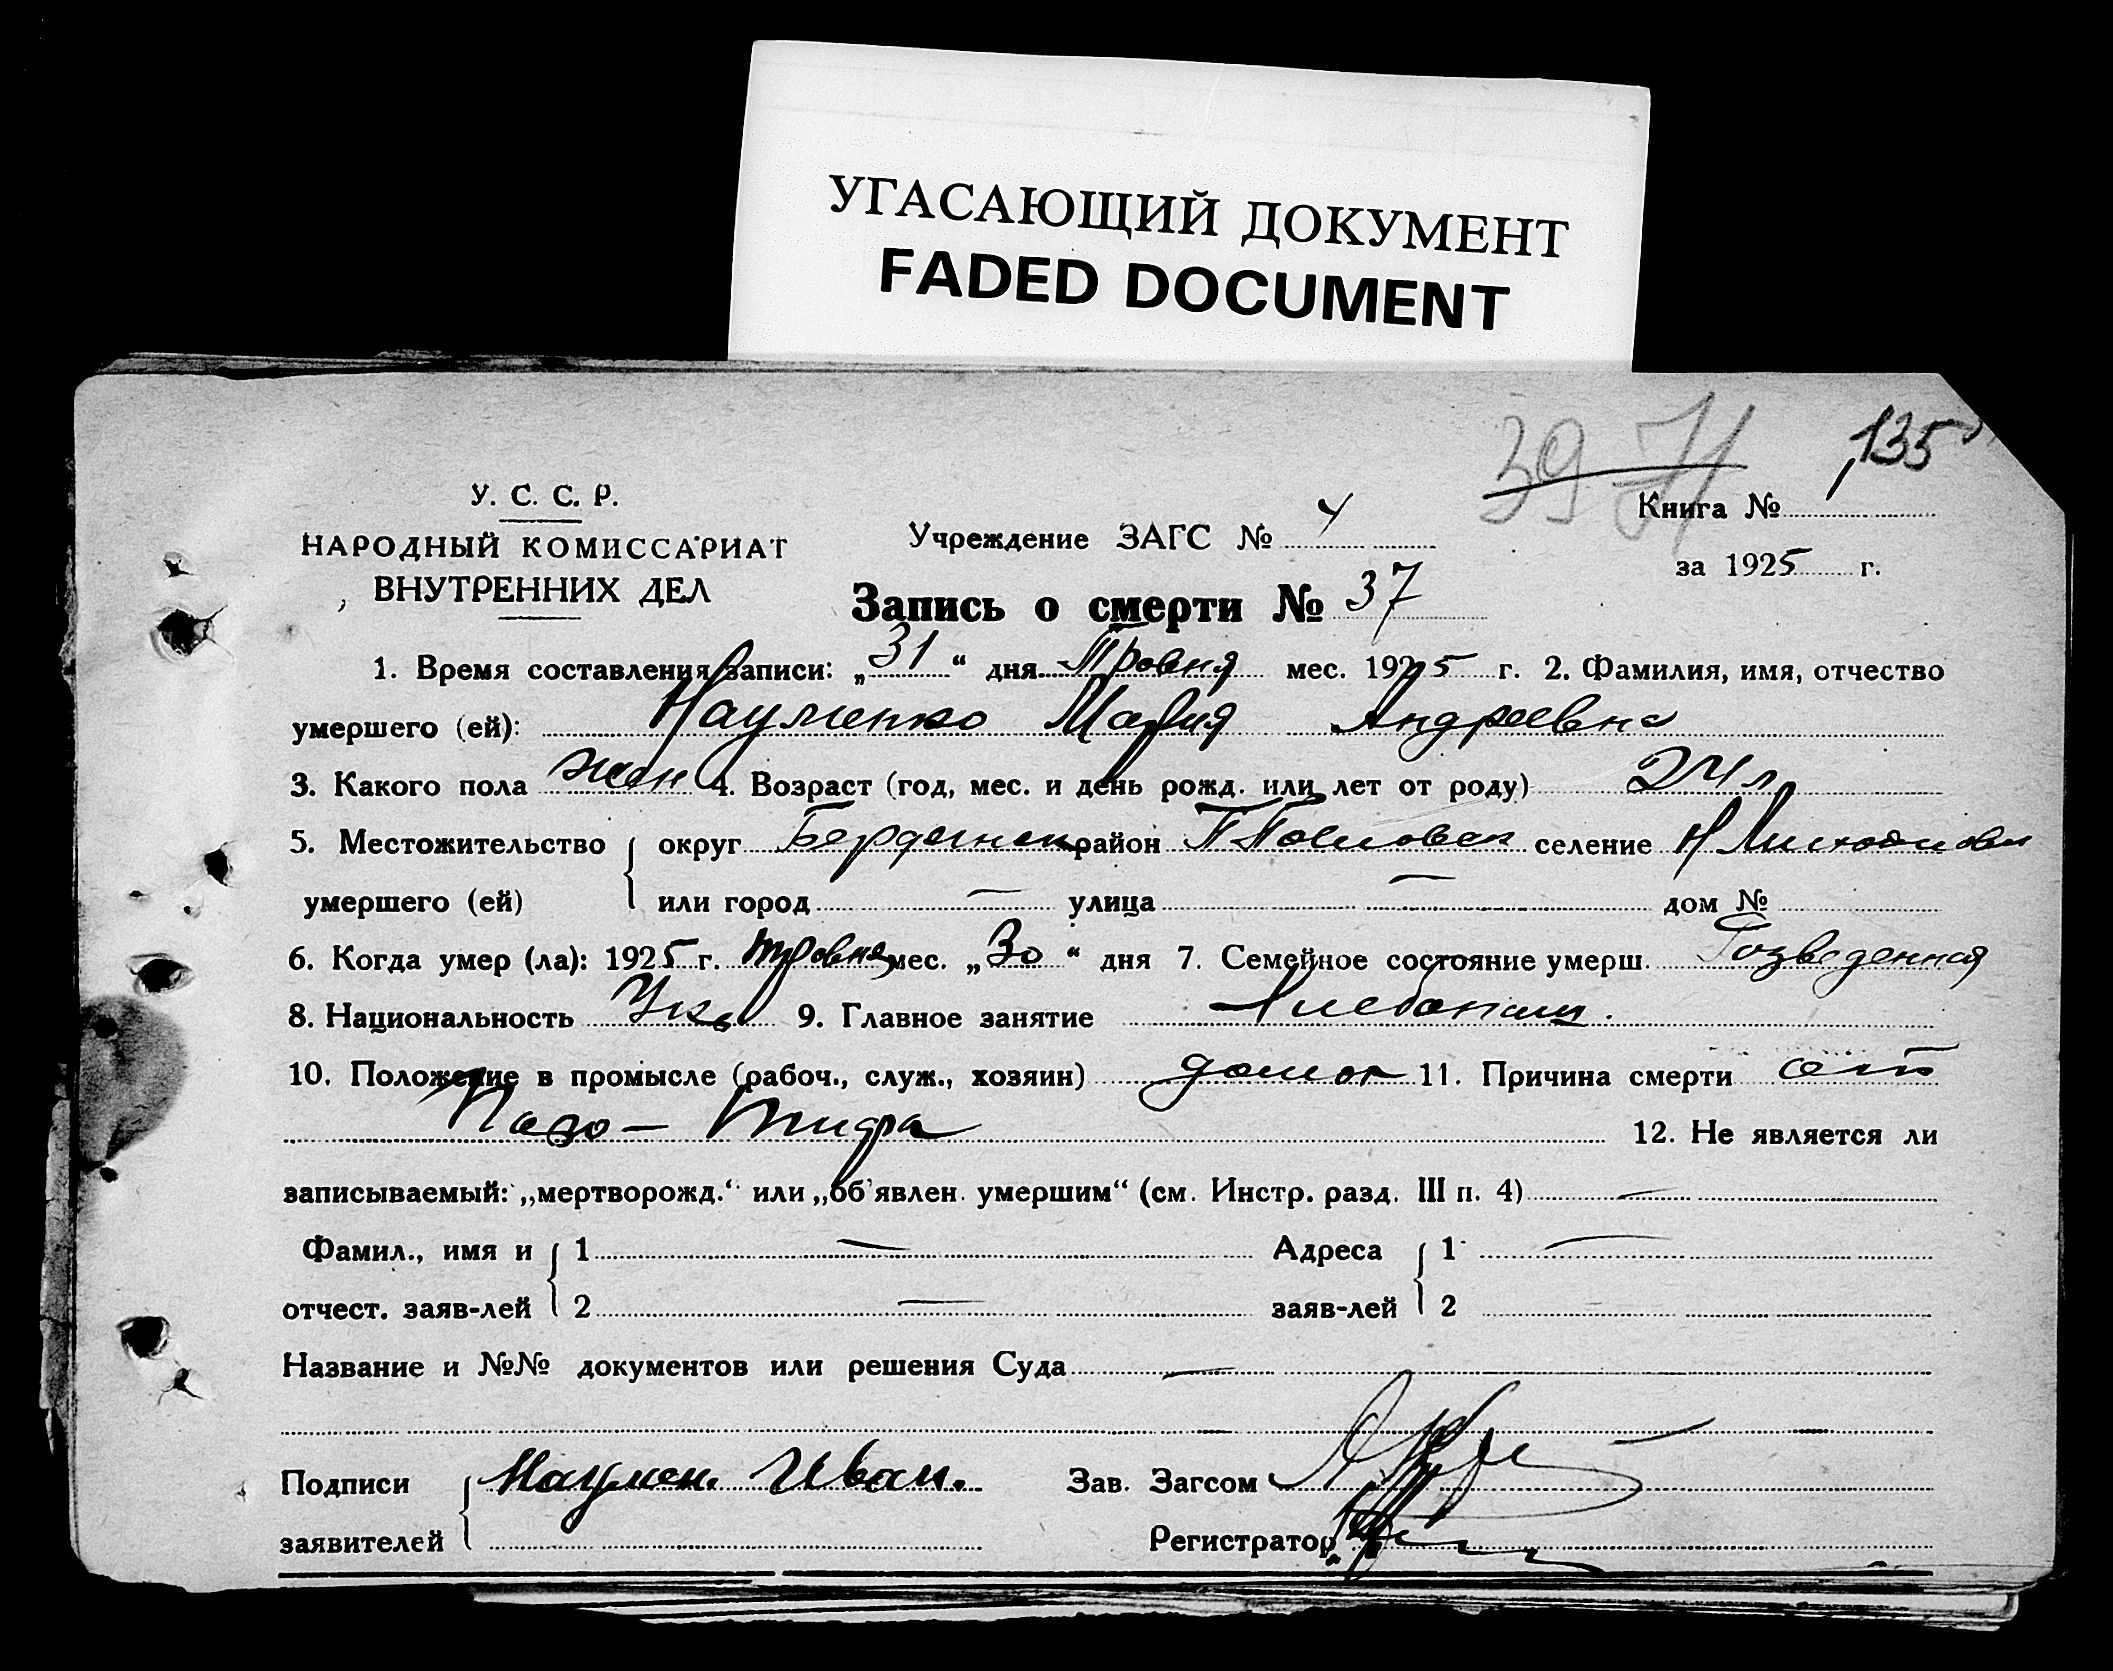 УГАСАЮЩИЙ ДОКУМЕНТ
FADED DOCUMENT
39 71 135
У. С. С. Р.
НАРОДНЫЙ КОМИССАРИАТ
ВНУТРЕННИХ ДЕЛ
Учреждение ЗАГС № 4
Книга №
за 1925 г.
Запись о смерти № 37
1. Время составления записи: „31“ дня Тровня мес. 1925 г. 2. Фамилия, имя, отчество
умершего (ей): Науменко Мария Андреевна
3. Какого пола жен 4. Возраст (год, мес. и день рожд. или лет от роду) 24 л
5. Местожительство округ Бердянск район селение
умершего (ей) или город — улица — дом №
6. Когда умер (ла): 1925 г. тровня мес. „30“ дня 7. Семейное состояние умерш. Розведенная
8. Национальность Укр 9. Главное занятие Хлебопаш.
10. Положение в промысле (рабоч., служ., хозяин) 11. Причина смерти от
тифа 12. Не является ли
записываемый: „мертворожд.“ или „об'явлен. умершим“ (см. Инстр. разд. III п. 4) —
Фамил., имя и 1 — Адреса 1 —
отчест. заяв-лей 2 — заяв-лей 2
Название и №№ документов или решения Суда —
Подписи Наумен. Иван. Зав. Загсом
заявителей Регистратор